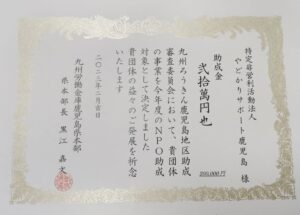 特定非営利活動法人
やどかりサポート鹿児島 様
助成金
弐拾萬円也
200,000円
九州ろうきん鹿児島地区助成
審査委員会において、貴団体
の事業を今年度のNPO助成
対象として決定しました
貴団体の益々のご発展を祈念
いたします
二〇二三年二月吉日
九州労働金庫鹿児島県本部
県本部長 黒江 嘉文